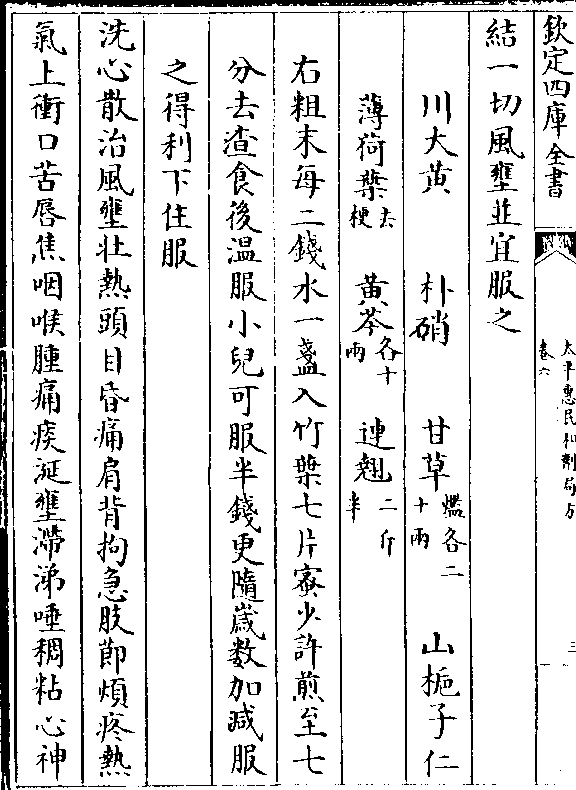 欽定四庫全書
太平惠民和劑局方
卷六
三
結一切風壅並宜服之
川大黃 朴硝 甘草爁各二十兩 山梔子仁
薄荷葉去梗 黃芩各十兩 連翹二斤半
右粗末每二錢水一盞入竹葉七片蜜少許煎至七
分去渣食後溫服小兒可服半錢更隨歲數加減服
之得利下住服
洗心散治風壅壯熱頭目昏痛肩背拘急肢節煩疼熱
氣上衝口苦唇焦咽喉腫痛痰涎壅滯涕唾稠粘心神